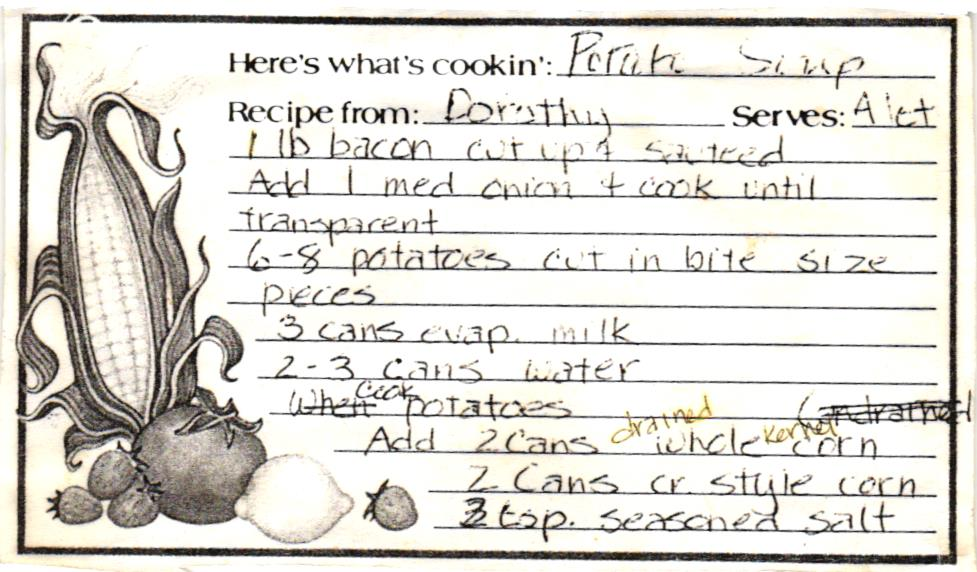 Here's what's cookin': Potato Soup
Recipe from: Dorothy Serves: A lot
1 lb bacon cut up & sauteed
Add 1 med onion + cook until
transparent
6-8 potatoes cut in bite size
pieces
3 cans evap. milk
2-3 cans water
When cook potatoes (undrained
Add 2 Cans drained whole kernel corn
2 Cans cr. style corn
3 tsp. seasoned salt